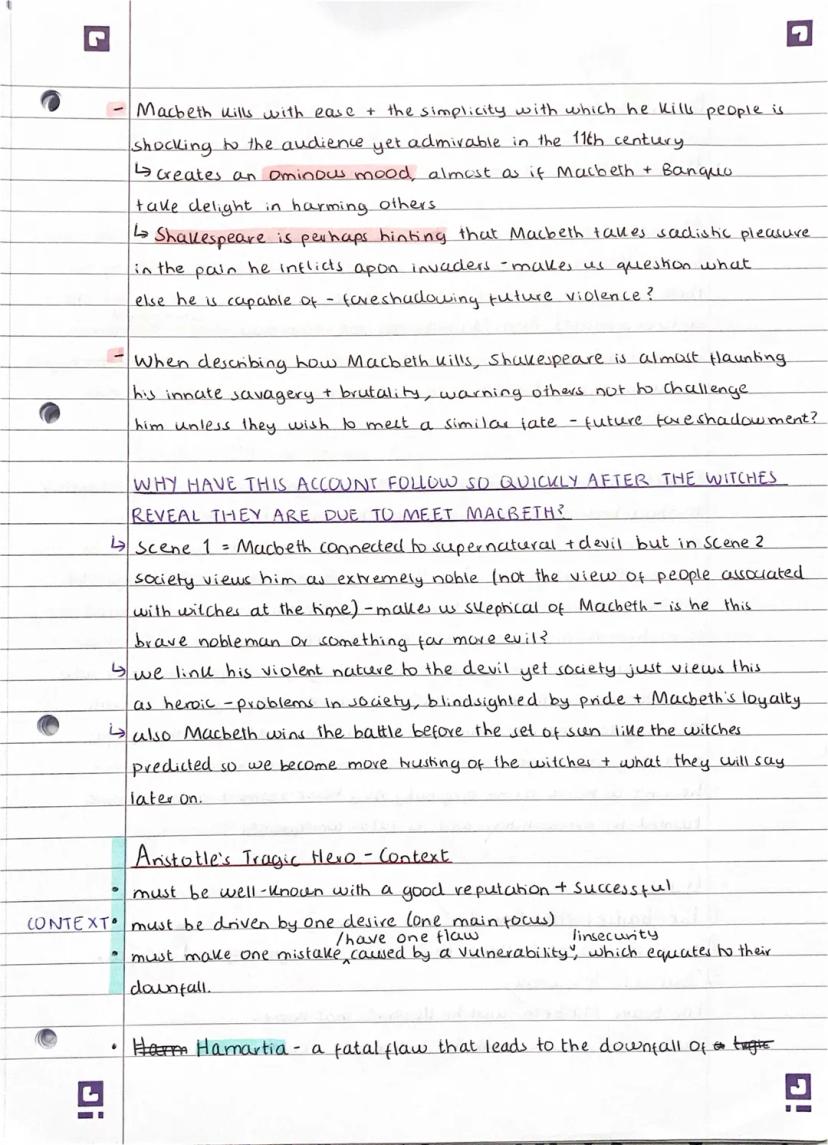 - Macbeth kills with ease + the simplicity with which he kills people is
shocking to the audience yet admirable in the 11th century
↳ creates an ominous mood, almost as if Macbeth + Banquo
take delight in harming others
↳ Shakespeare is perhaps hinting that Macbeth takes sadistic pleasure
in the pain he inflicts apon invaders - makes us question what
else he is capable of - foreshadowing future violence?
- When describing how Macbeth kills, Shakespeare is almost flaunting
his innate savagery + brutality, warning others not to challenge
him unless they wish to meet a similar fate - future foreshadowment?
WHY HAVE THIS ACCOUNT FOLLOW SO QUICKLY AFTER THE WITCHES
REVEAL THEY ARE DUE TO MEET MACBETH?
↳ scene 1 = Macbeth connected to supernatural + devil but in scene 2
society views him as extremely noble (not the view of people associated
with witches at the time) - makes us skeptical of Macbeth - is he this
brave nobleman or something far more evil?
↳ we link his violent nature to the devil yet society just views this
as heroic - problems in society, blindsighted by pride + Macbeth's loyalty
↳ also Macbeth wins the battle before the set of sun like the witches
predicted so we become more trusting of the witches + what they will say
later on.
Aristotle's Tragic Hero - Context
• must be well-known with a good reputation + successful
CONTEXT • must be driven by one desire (one main focus)
/have one flaw /insecurity
• must make one mistake ^ caused by a vulnerability ^, which equates to their
downfall.
• Harm Hamartia - a fatal flaw that leads to the downfall of a tragic